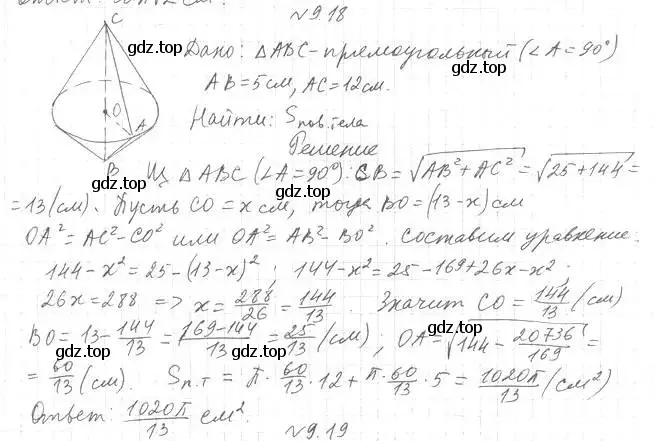 N 9.18
C
gdz.top
Дано: △ABC-прямоугольный (∠A=90°)
gdz.top
AB=5см, AC=12см.
gdz.top
O
A
Найти: Sпов.тела
B
Решение
Из △ABC (∠A=90°): CB=√(AB²+AC²)=√(25+144)=
=13(см). Пусть CO=x см, тогда BO=(13-x)см
OA²=AC²-CO² или OA²=AB²-BO². Составим уравнение:
144-x²=25-(13-x)²; 144-x²=25-169+26x-x²;
26x=288 => x=288/26=144/13. Значит CO=144/13(см)
BO=13-144/13=(169-144)/13=25/13(см); OA=√(144-20736/169)=
=60/13(см). Sп.т=π·60/13·12+π·60/13·5=1020π/13(см²)
Ответ: 1020π/13 см².
gdz.top
N 9.19